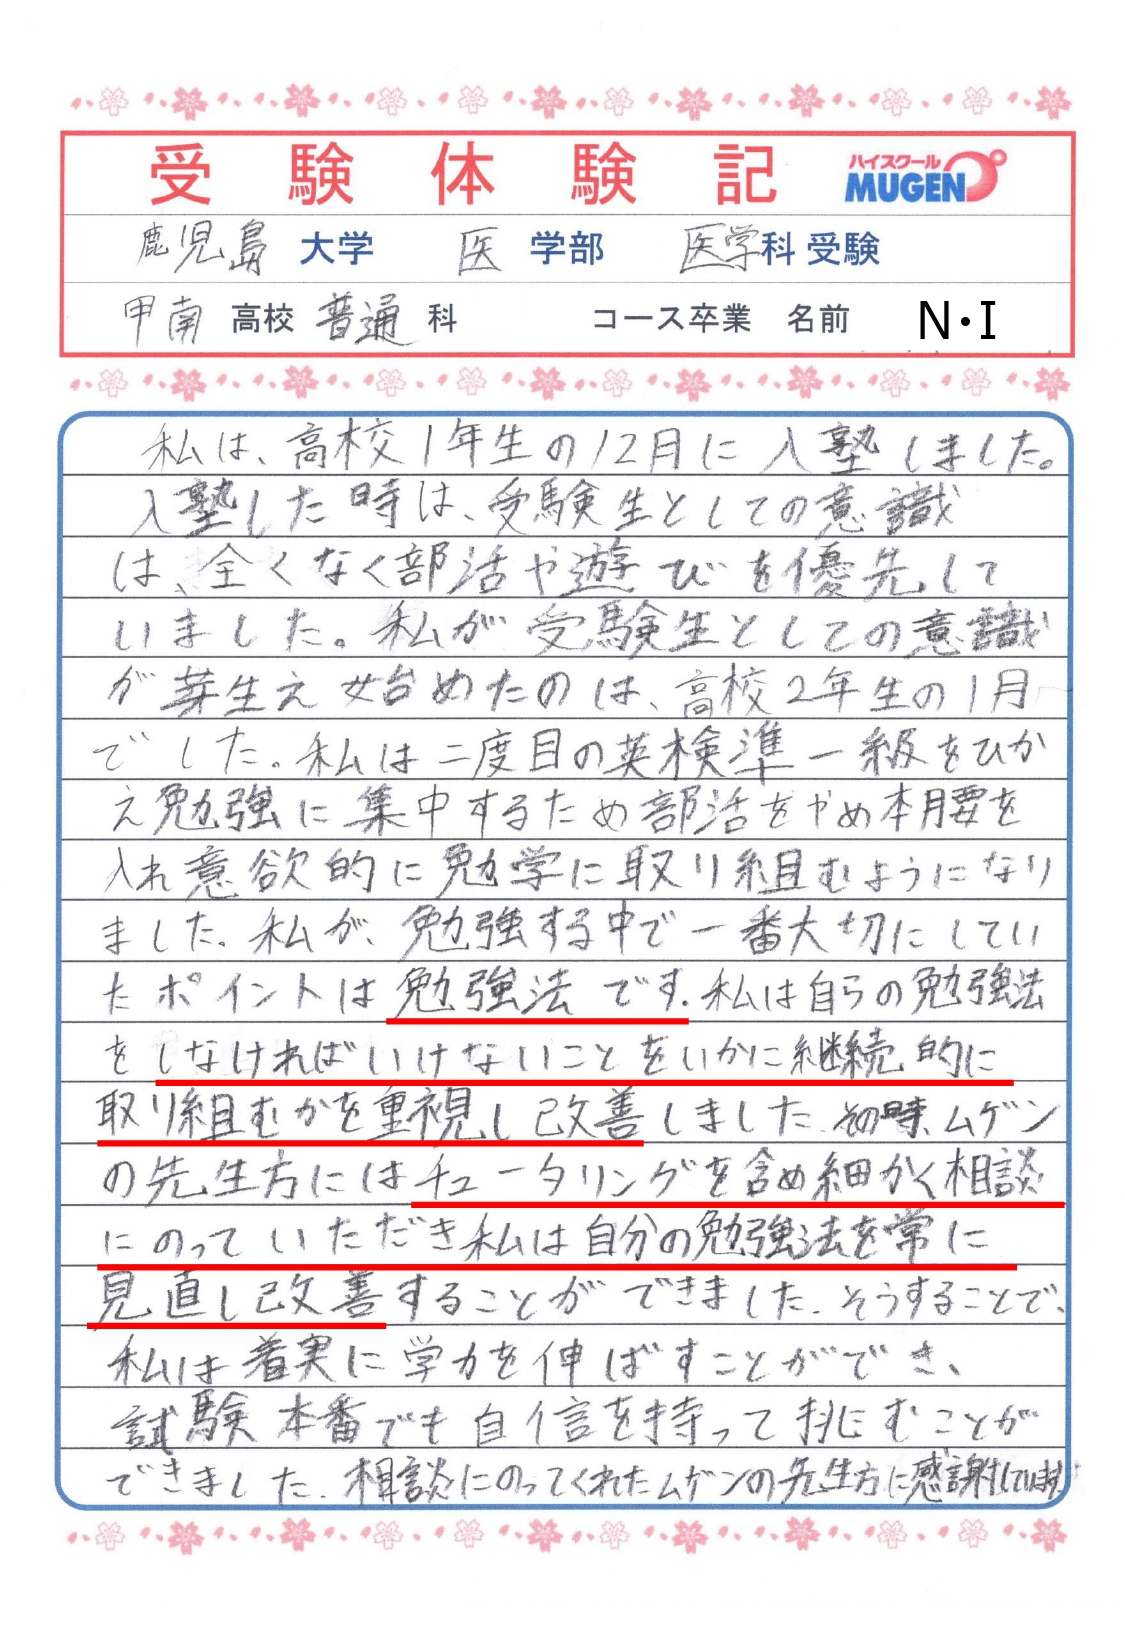 受験体験記 ハイスクール MUGEN
鹿児島 大学 医 学部 医学科 受験
甲南 高校 普通 科 コース卒業 名前 N・I
私は、高校1年生の12月に入塾しました。
入塾した時は、受験生としての意識
は、全くなく部活や遊びを優先して
いました。私が受験生としての意識
が芽生え始めたのは、高校2年生の1月
でした。私は二度目の英検準一級をひか
え勉強に集中するため部活をやめ本腰を
入れ意欲的に勉学に取り組むようになり
ました。私が、勉強する中で一番大切にしてい
たポイントは勉強法です。私は自らの勉強法
をしなければいけないことをいかに継続的に
取り組むかを重視し改善しました. その時、ムゲン
の先生方にはチュータリングを含め細かく相談
にのっていただき私は自分の勉強法を常に
見直し改善することができました. そうすることで、
私は着実に学力を伸ばすことができ、
試験本番でも自信を持って挑むことが
できました. 相談にのってくれたムゲンの先生方に感謝しています。